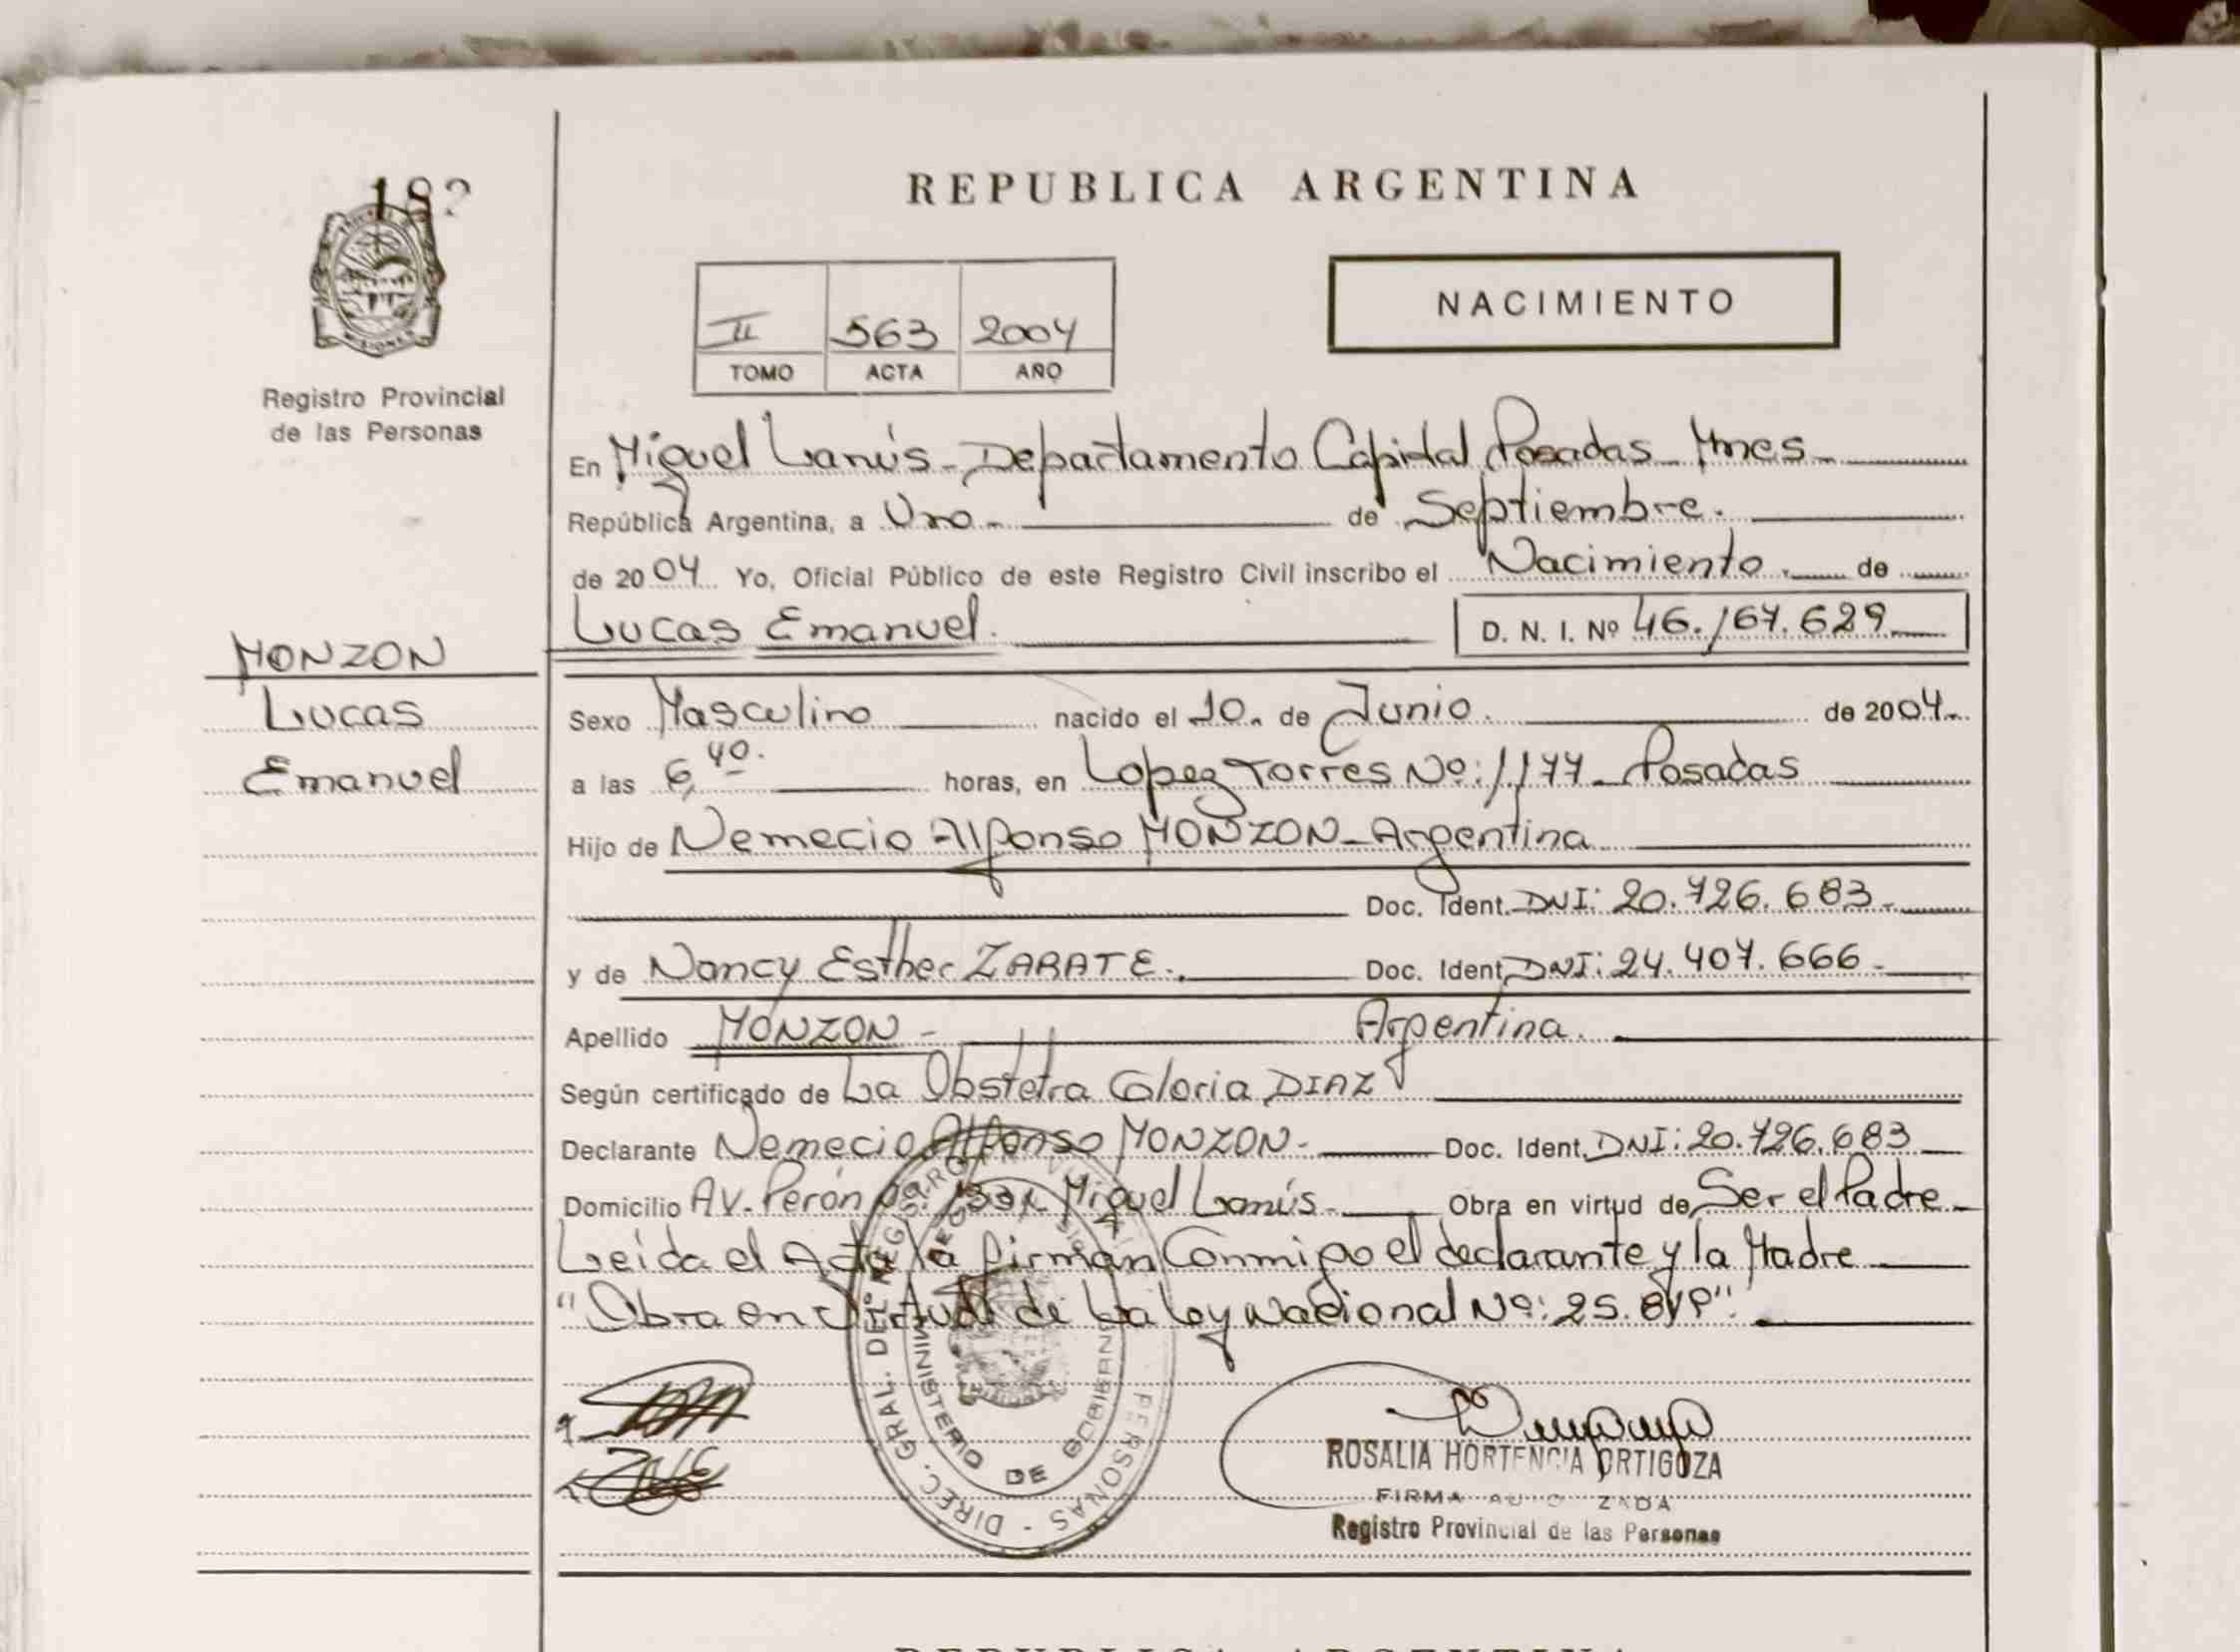 REPUBLICA ARGENTINA
NACIMIENTO
II 563 2004
TOMO ACTA AÑO
Registro Provincial
de las Personas
En Miguel Lanús - Departamento Capital Posadas Mnes -
República Argentina, a Uno - de Septiembre.
de 2004 Yo, Oficial Público de este Registro Civil inscribo el Nacimiento de
Lucas Emanuel. D. N. I. Nº 46.167.629
MONZON
Lucas
Emanuel
Sexo Masculino nacido el 10. de Junio. de 2004.
a las 6,40. horas, en Lopez Torres Nº: 1177 - Posadas
Hijo de Nemecio Alfonso MONZON - Argentina
Doc. Ident. DNI: 20.726.683 -
y de Nancy Esther ZARATE. Doc. Ident. DNI: 24.407.666 -
Apellido MONZON - Argentina.
Según certificado de La Obstetra Gloria DIAZ
Declarante Nemecio Alfonso MONZON - Doc. Ident. DNI: 20.726.683
Domicilio Av. Perón Miguel Lanús - Obra en virtud de Ser el Padre -
Leida el Acta la firman Conmigo el declarante y la Madre
"Obra en Virtud de La Ley Nacional Nº:
DIREC. GRAL. DEL REGISTRO PERSONAS
MINISTERIO DE GOBIERNO
ROSALIA HORTENCIA ORTIGOZA
FIRMA AUTORIZADA
Registro Provincial de las Personas
REPUBLICA ARGENTINA